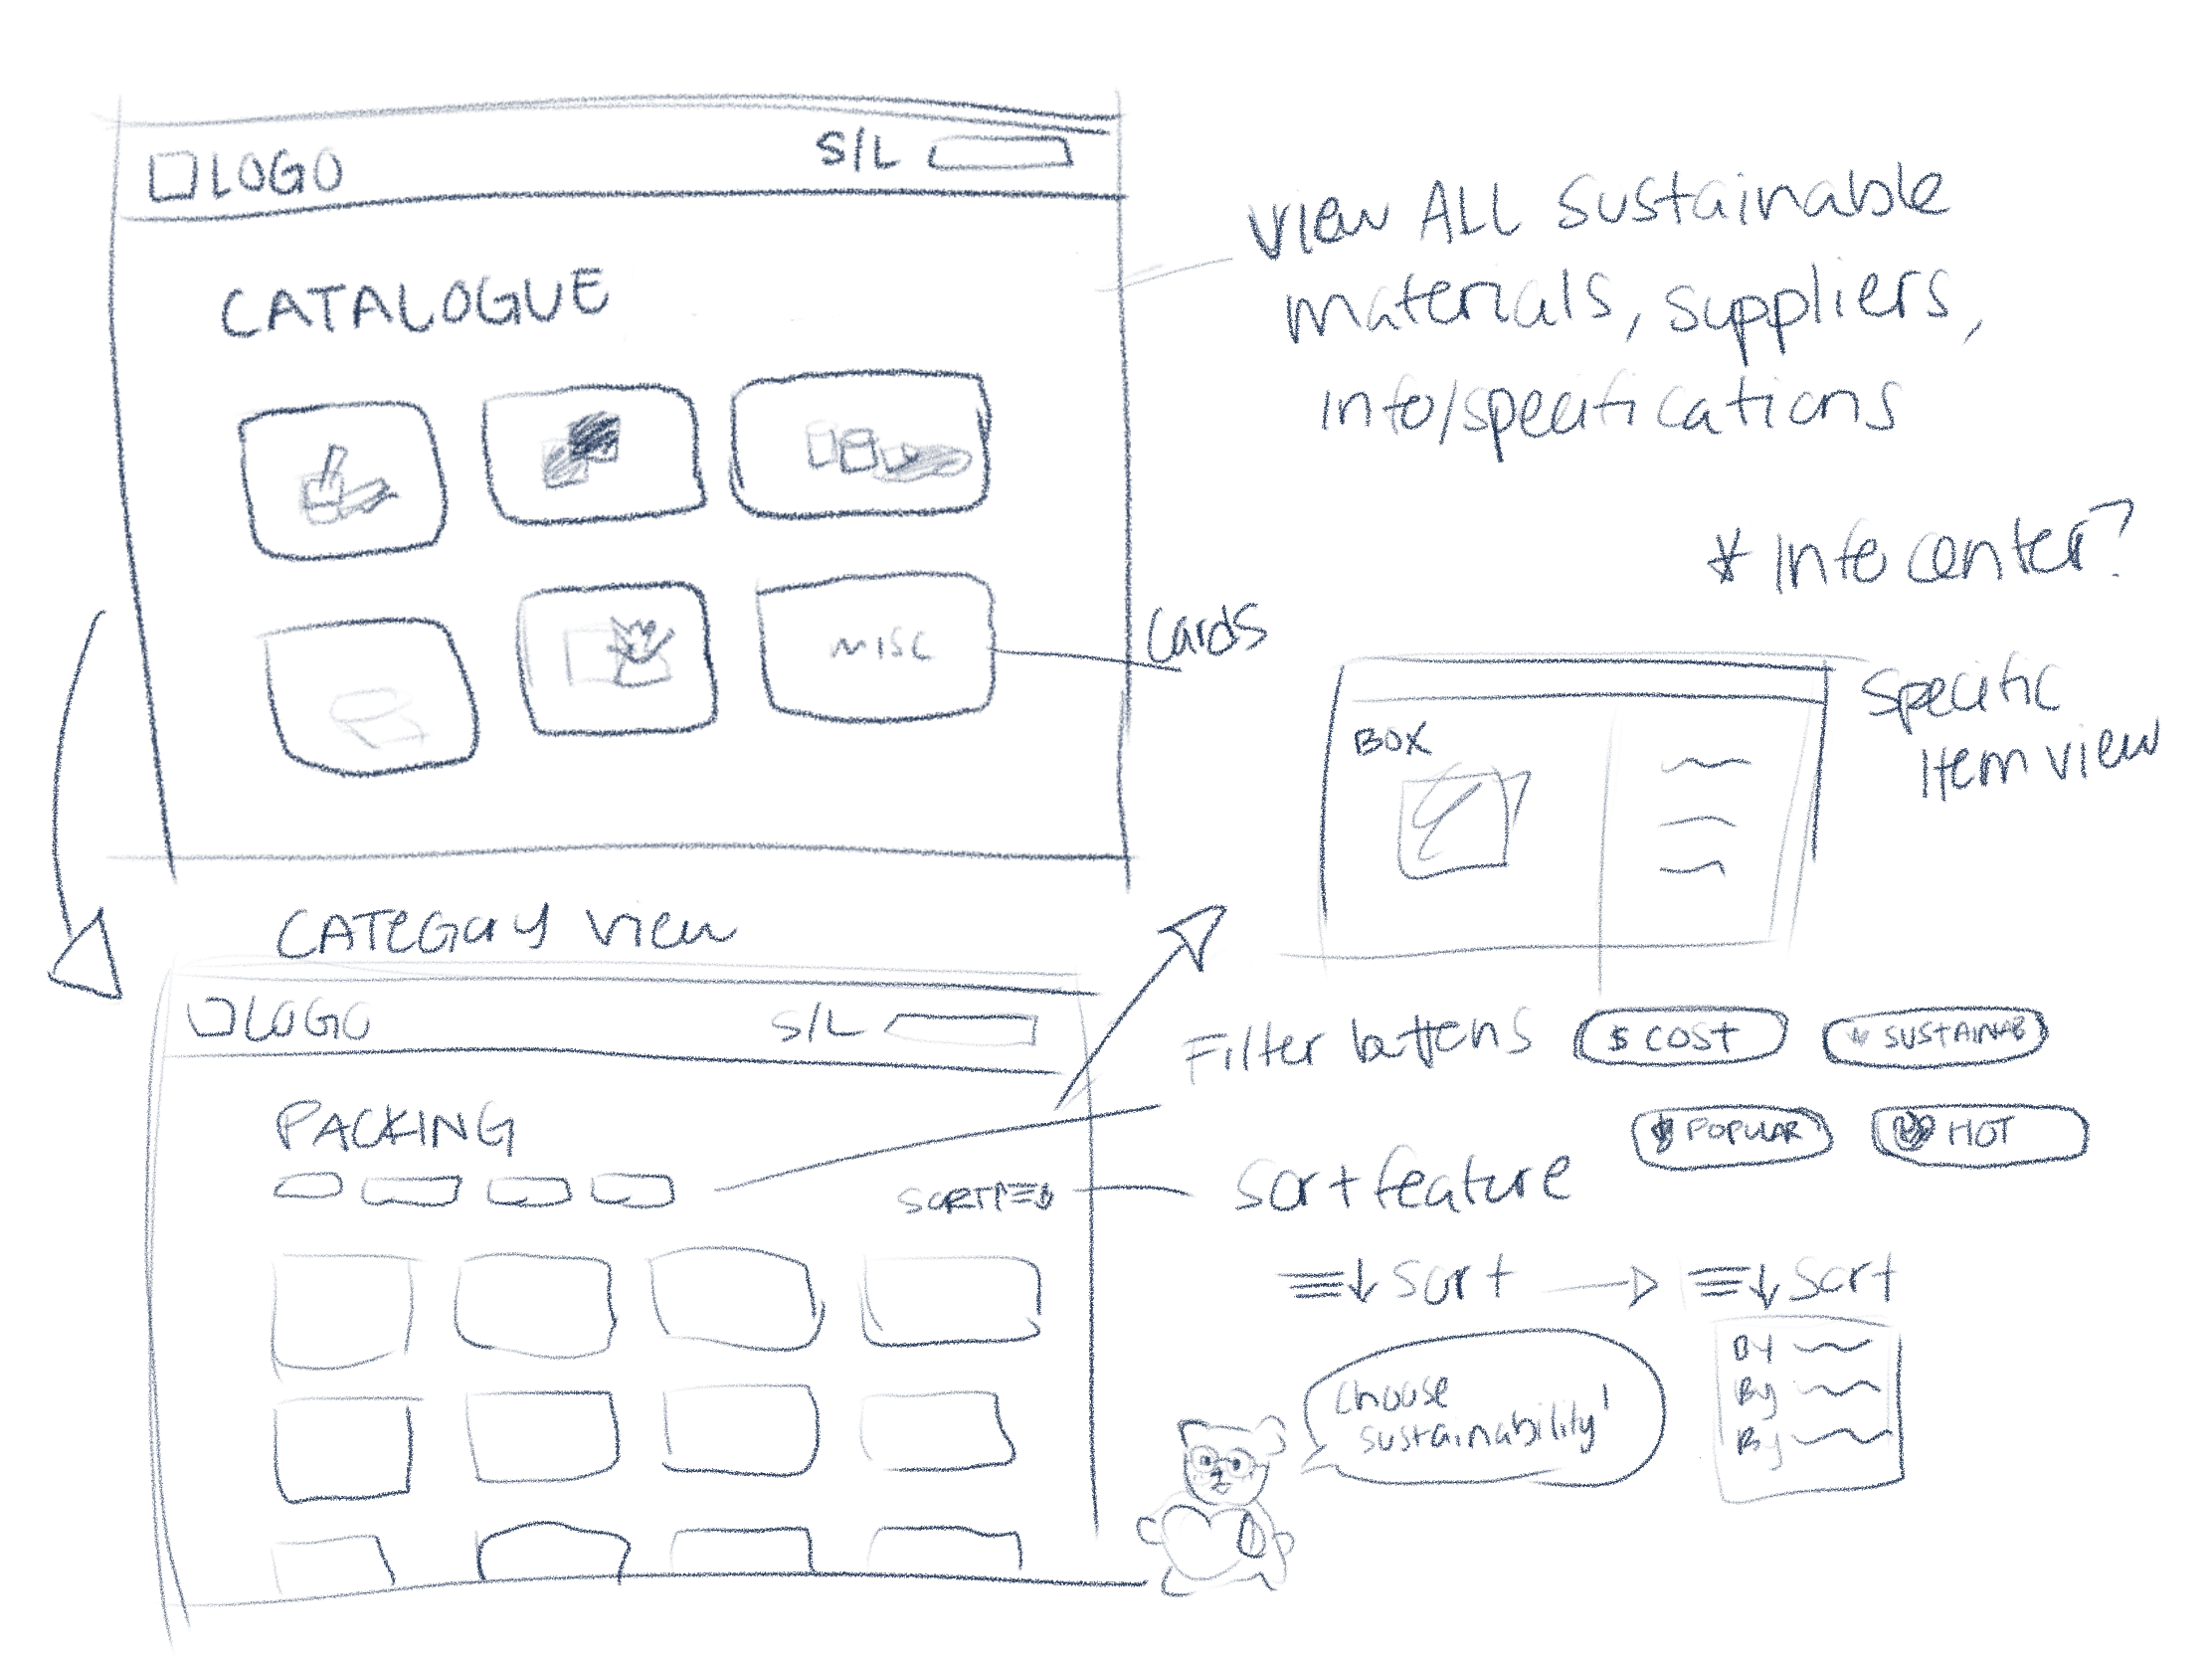 LOGO
S/L
CATALOGUE
MISC
cards
View ALL sustainable
materials, suppliers,
info/specifications
* Info center?
Specific
Item view
BOX
CATEGOrY view
LOGO
S/L
PACKING
SORT
Filter buttons
$ COST
SUSTAINAB
POPULAR
HOT
Sort feature
Sort
Sort
By
By
By
Choose
sustainability!